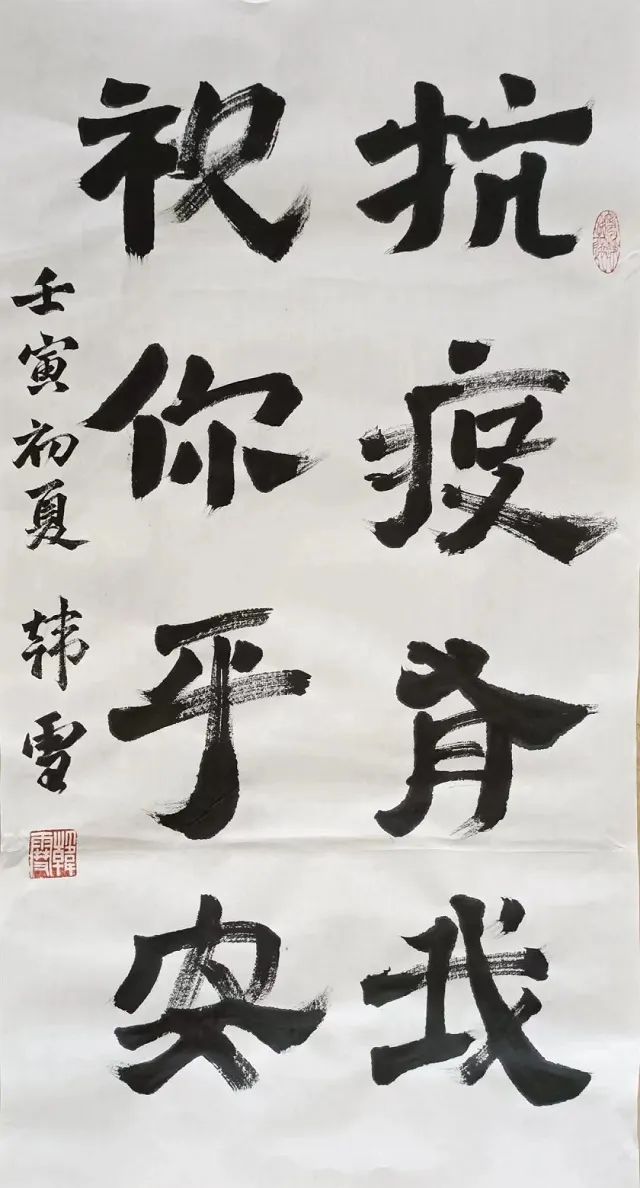 抗疫有我
祝你平安
壬寅初夏 韩雪